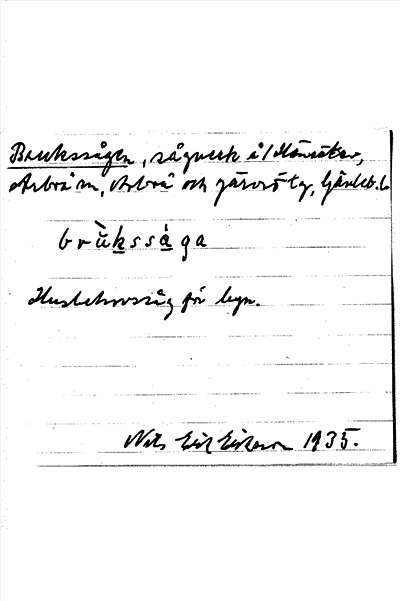 Brukssågen, sågverk å/Hänsäter,
Arbrå sn, Arbrå och Järvsö tg, Gävleb.l.
brùkssága
Husbehovssåg för byn.
Nils Erik Eriksson 1935.